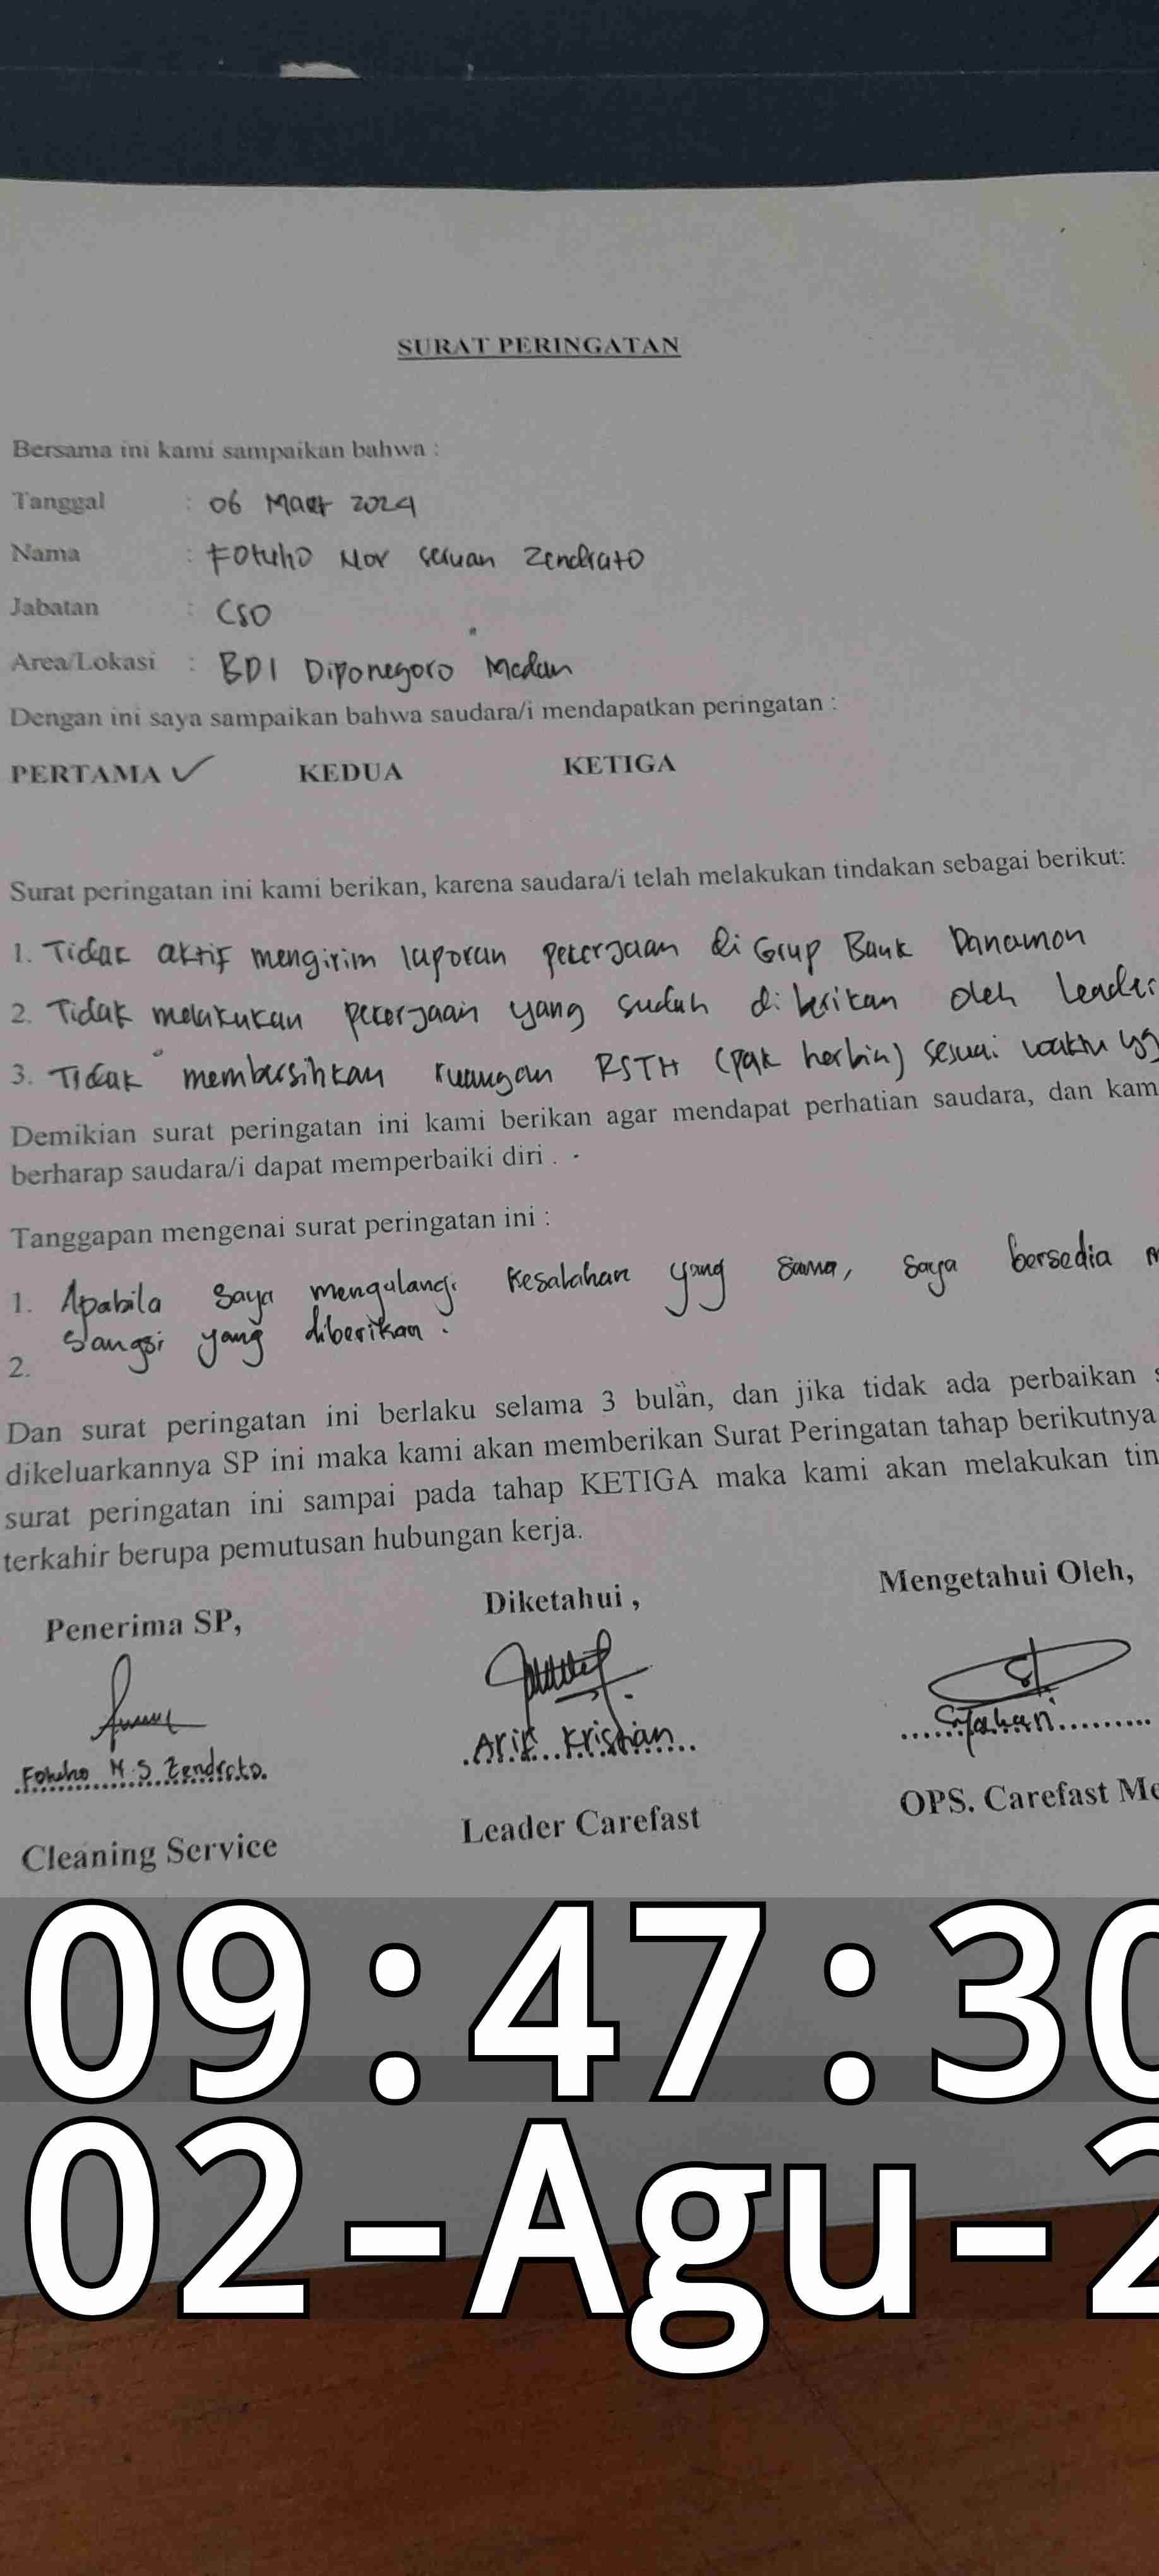 SURAT PERINGATAN
Bersama ini kami sampaikan bahwa :
Tanggal : 06 Maret 2024
Nama : Fotuho Nov seruan Zendrato
Jabatan : CSO
Area/Lokasi : BDI Diponegoro Medan
Dengan ini saya sampaikan bahwa saudara/i mendapatkan peringatan :
PERTAMA ✓ KEDUA KETIGA
Surat peringatan ini kami berikan, karena saudara/i telah melakukan tindakan sebagai berikut:
1. Tidak aktif mengirim laporan pekerjaan di Grup Bank Danamon
2. Tidak melakukan pekerjaan yang sudah di berikan oleh Leader
3. Tidak membersihkan ruangan RSTH (pak herbin) sesuai waktu yg
Demikian surat peringatan ini kami berikan agar mendapat perhatian saudara, dan kam
berharap saudara/i dapat memperbaiki diri .
Tanggapan mengenai surat peringatan ini :
1. Apabila saya mengulangi kesalahan yang sama, saya bersedia m
sangsi yang diberikan .
2.
Dan surat peringatan ini berlaku selama 3 bulan, dan jika tidak ada perbaikan s
dikeluarkannya SP ini maka kami akan memberikan Surat Peringatan tahap berikutnya
surat peringatan ini sampai pada tahap KETIGA maka kami akan melakukan tin
terkahir berupa pemutusan hubungan kerja.
Penerima SP, Diketahui , Mengetahui Oleh,
Fotuho N.S Zendrato. Arif Kristian Syahari
Cleaning Service Leader Carefast OPS. Carefast Me
09:47:30
02-Agu-2